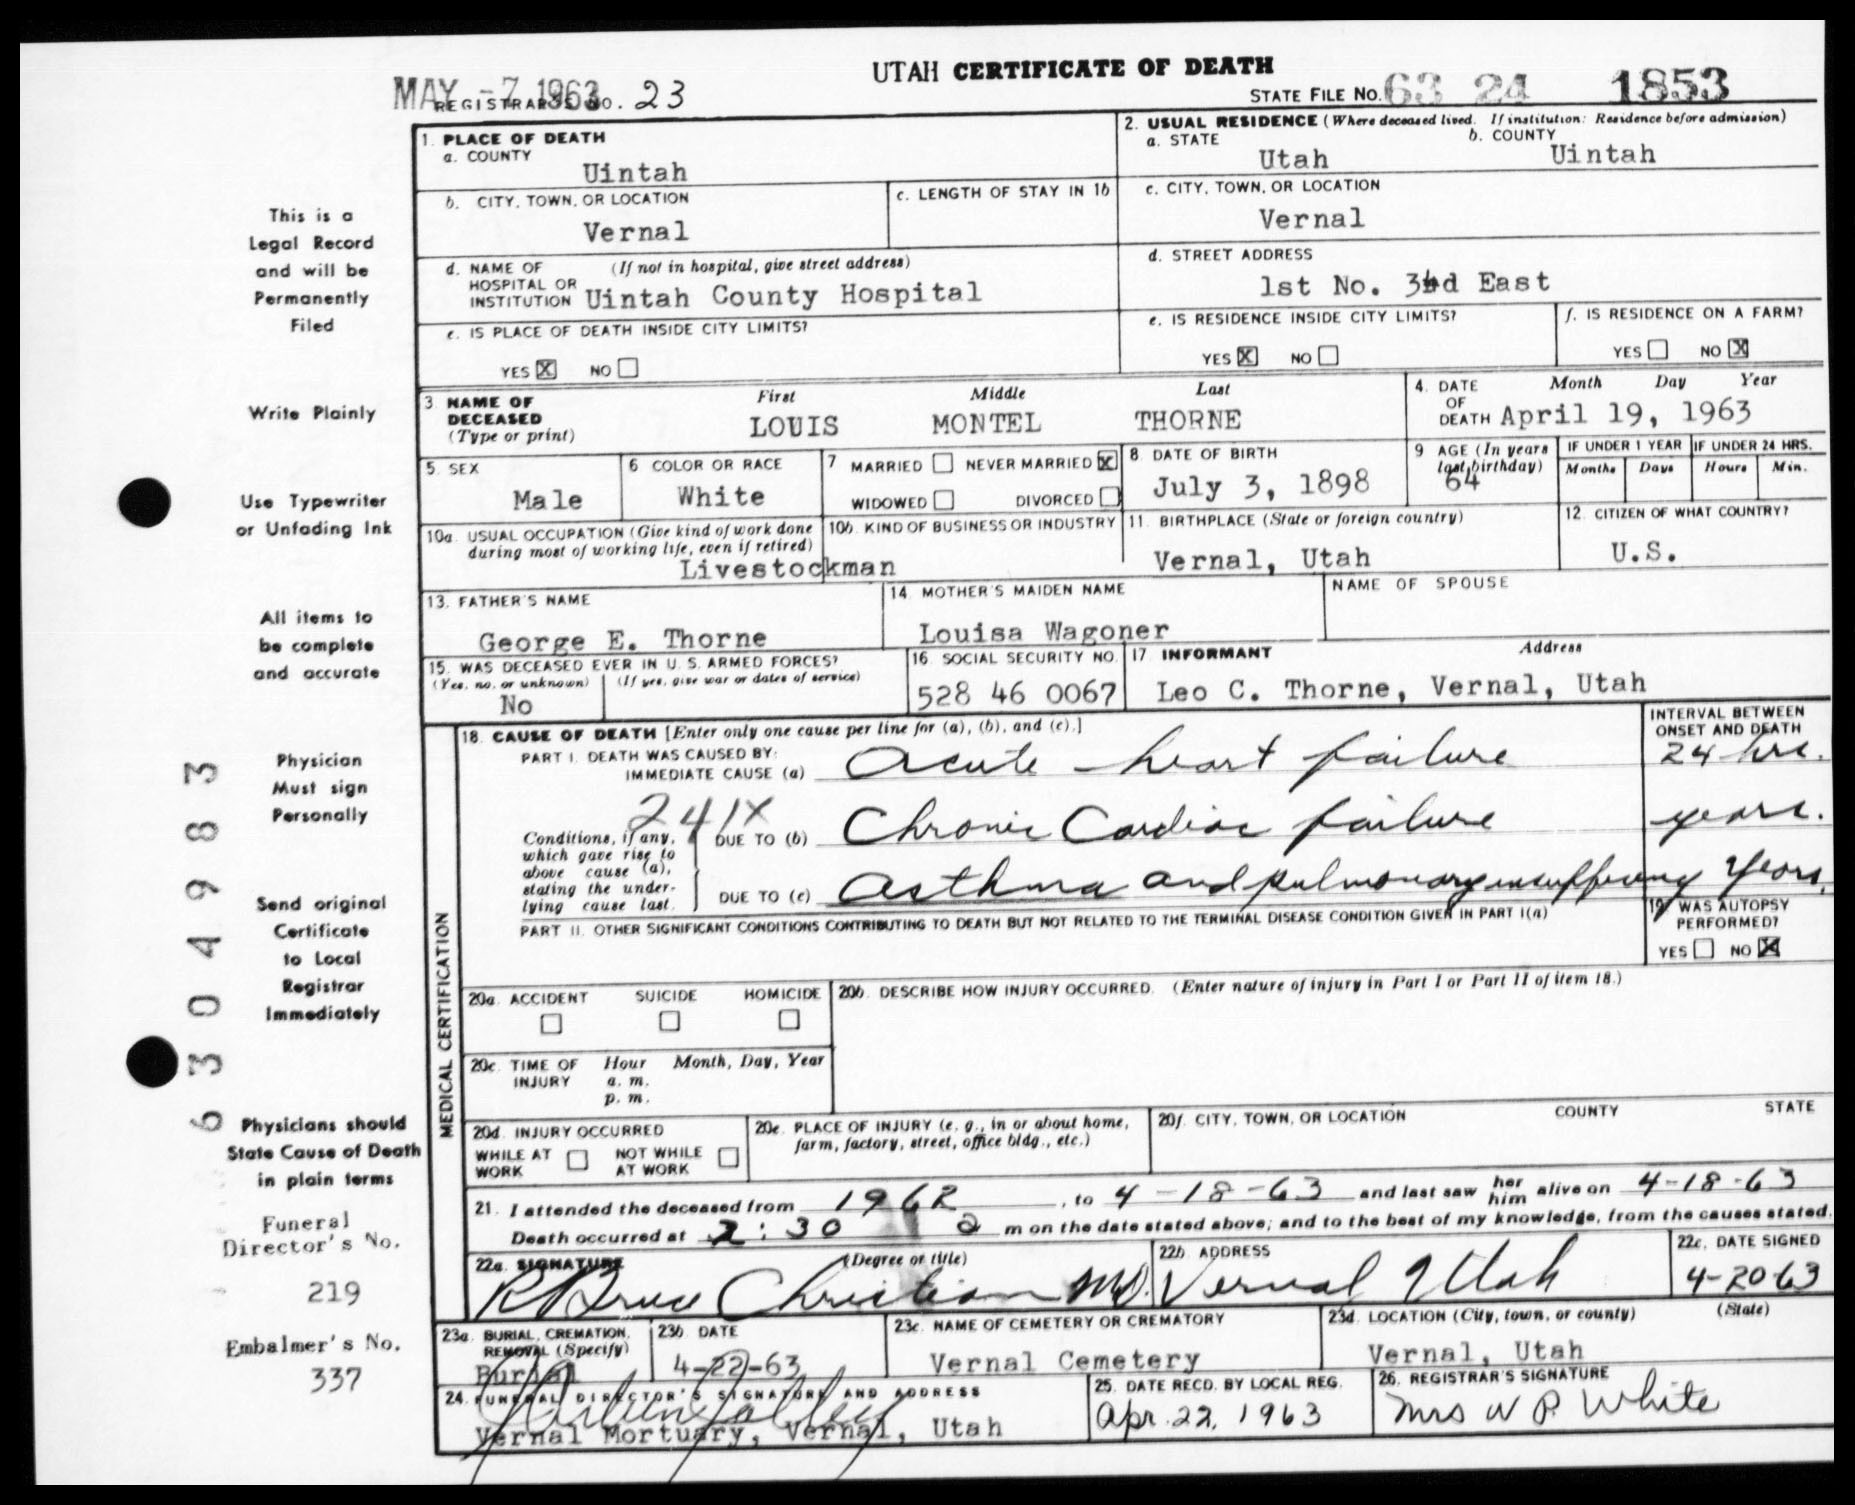 UTAH CERTIFICATE OF DEATH
MAY -7 1963
REGISTRAR'S NO. 23
STATE FILE NO. 63 24 1853
1. PLACE OF DEATH
a. COUNTY
Uintah
2. USUAL RESIDENCE (Where deceased lived. If institution: Residence before admission)
a. STATE b. COUNTY
Utah Uintah
b. CITY, TOWN, OR LOCATION
Vernal
c. LENGTH OF STAY IN 1b
c. CITY, TOWN, OR LOCATION
Vernal
d. NAME OF HOSPITAL OR INSTITUTION (If not in hospital, give street address)
Uintah County Hospital
d. STREET ADDRESS
1st No. 3rd East
e. IS PLACE OF DEATH INSIDE CITY LIMITS?
YES X NO
e. IS RESIDENCE INSIDE CITY LIMITS?
YES X NO
f. IS RESIDENCE ON A FARM?
YES NO X
3. NAME OF DECEASED (Type or print)
First Middle Last
LOUIS MONTEL THORNE
4. DATE OF DEATH Month Day Year
April 19, 1963
5. SEX
Male
6 COLOR OR RACE
White
7 MARRIED NEVER MARRIED X
WIDOWED DIVORCED
8 DATE OF BIRTH
July 3, 1898
9 AGE (In years last birthday)
64
IF UNDER 1 YEAR IF UNDER 24 HRS.
Months Days Hours Min.
10a. USUAL OCCUPATION (Give kind of work done during most of working life, even if retired)
10b. KIND OF BUSINESS OR INDUSTRY
Livestockman
11. BIRTHPLACE (State or foreign country)
Vernal, Utah
12. CITIZEN OF WHAT COUNTRY?
U.S.
13. FATHER'S NAME
George E. Thorne
14. MOTHER'S MAIDEN NAME
Louisa Wagoner
NAME OF SPOUSE
15. WAS DECEASED EVER IN U.S. ARMED FORCES?
(Yes, no, or unknown) (If yes, give war or dates of service)
No
16. SOCIAL SECURITY NO.
528 46 0067
17. INFORMANT Address
Leo C. Thorne, Vernal, Utah
MEDICAL CERTIFICATION
18. CAUSE OF DEATH [Enter only one cause per line for (a), (b), and (c).]
INTERVAL BETWEEN ONSET AND DEATH
PART I. DEATH WAS CAUSED BY:
IMMEDIATE CAUSE (a) Acute heart failure 24 hrs.
241X
Conditions, if any, which gave rise to above cause (a), stating the underlying cause last.
DUE TO (b) Chronic Cardiac failure years.
DUE TO (c) Asthma and pulmonary Years.
PART II. OTHER SIGNIFICANT CONDITIONS CONTRIBUTING TO DEATH BUT NOT RELATED TO THE TERMINAL DISEASE CONDITION GIVEN IN PART I(a)
19. WAS AUTOPSY PERFORMED?
YES NO X
20a. ACCIDENT SUICIDE HOMICIDE
20b. DESCRIBE HOW INJURY OCCURRED. (Enter nature of injury in Part I or Part II of item 18.)
20c. TIME OF INJURY Hour Month, Day, Year
a. m.
p. m.
20d. INJURY OCCURRED
WHILE AT WORK NOT WHILE AT WORK
20e. PLACE OF INJURY (e. g., in or about home, farm, factory, street, office bldg., etc.)
20f. CITY, TOWN, OR LOCATION COUNTY STATE
21. I attended the deceased from 1962, to 4-18-63 and last saw her him alive on 4-18-63
Death occurred at 2:30 a m on the date stated above; and to the best of my knowledge, from the causes stated.
22a. SIGNATURE (Degree or title)
R Bruce Christian MD.
22b ADDRESS
Vernal Utah
22c. DATE SIGNED
4-20-63
23a. BURIAL, CREMATION, REMOVAL (Specify)
Burial
23b DATE
4-22-63
23c. NAME OF CEMETERY OR CREMATORY
Vernal Cemetery
23d. LOCATION (City, town, or county) (State)
Vernal, Utah
24. FUNERAL DIRECTOR'S SIGNATURE AND ADDRESS
Vernal Mortuary, Vernal, Utah
25. DATE RECD. BY LOCAL REG.
Apr. 22, 1963
26. REGISTRAR'S SIGNATURE
Mrs W P. White
This is a
Legal Record
and will be
Permanently
Filed
Write Plainly
Use Typewriter
or Unfading Ink
All items to
be complete
and accurate
Physician
Must sign
Personally
Send original
Certificate
to Local
Registrar
Immediately
Physicians should
State Cause of Death
in plain terms
Funeral
Director's No.
219
Embalmer's No.
337
6304983